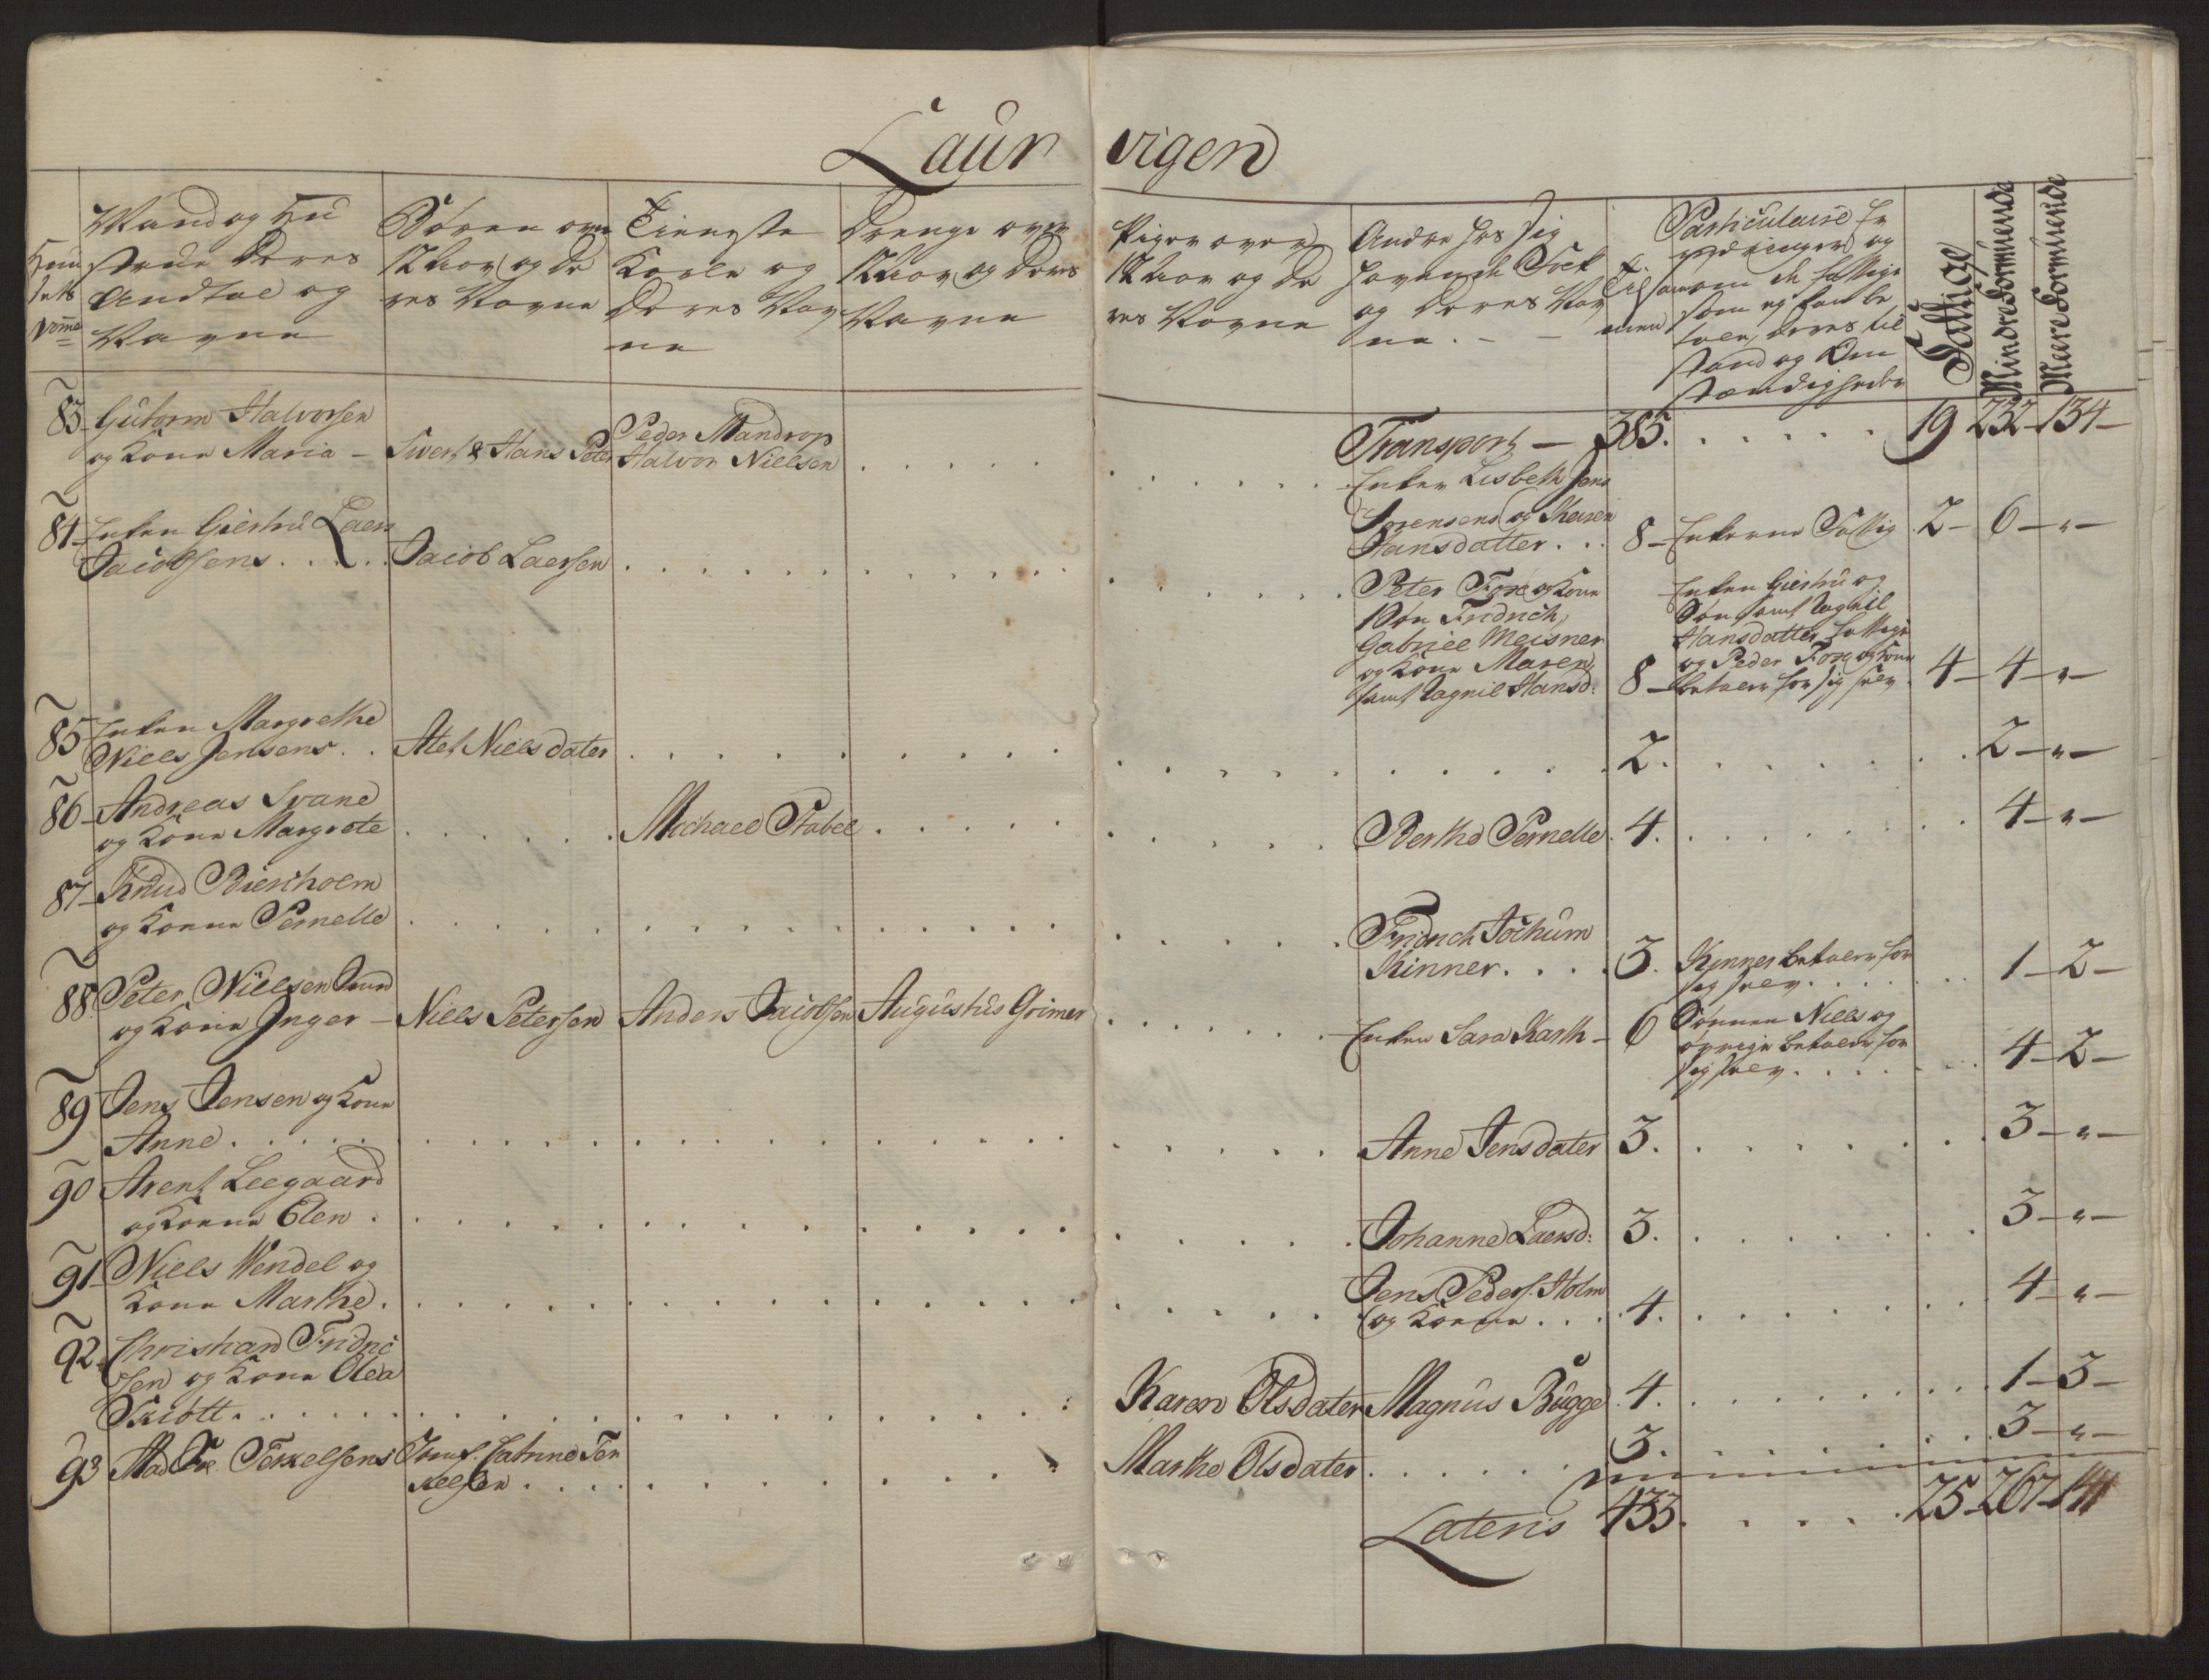 Laur vigen
Huu
sets
Nome
Mand og Hu
strue Deres
Andtal og
Navne
Børen over
12 Aar og De
res Navne
Tieneste
Karle og
Deres Nav
ne
Drenge over
12 Aar og Deres
Navne
Piger over
12 Aar og De
res Navne
Andre hos sig
havende Folk
og Deres Nav
ne. - -
Tilsam
men
Particulaire Er
indringer og
om de fattige
som ey kan be
tale, deres til
stand og Om
stændigheder
Fattige
Mindreformuende
Meereformuende
Transport - 385. . . . . . 19 232 - 134 -
83 Gutorm Halvorsen
og Kone Maria - Swert & Hans Peter
Peder Mandrop
Halvor Nielsen
Enken Lisbeth Jens
Sørensens og Karen
Hansdatter. . . 8 - Enkerne Fattig 2 - 6 - " -
84 Enken Giertru Laers
Jacobsens. . . . . Jacob Laersen
Peter Fos og Kone
1 Søn Fridrich,
Gabriel Meisner
og Kone Maren,
samt Ragnil Hansd: 8 -
Enken Giertru og
Søn samt Ragnil
Hansdatter fattige
og Peder Fos og Kone
betaler for sig selv. 4 - 4 - " -
85 Enken Margrethe
Niels Jensens. . Alet Niels dater 2. 2 - " -
86 - Andreas Svane
og Kone Margrete Michael Stabel Berthe Pernelle. 4. 4 - " -
87 - Knud Bierholm
og Konne Pernelle
Fridrich Jochum
Kinner. . . . 3. Kynner betaler for
sig selv. 1 - 2 -
88 Peter Nielsen Lund
og Kone Inger - Niels Petersen Anders Jacobsen Augustus Grimer Enken Sara Karth - 6
Sønnen Niels og
øvrige betaler for
sig selv. 4 - 2 -
89 Jens Jensen og Kone
Anne. Anne Jens dater 3. 3 - " -
90 Arent Leegaard
og Konne Elen. Johanne Laersd: 3. 3 - " -
91 - Niels Wendel og
Kone Marthe.
Jens Peders. Holm
og Konne. . . . 4. 4 - " -
92 - Christian Fridric
sen og Kone Olea
Sciøtt. Karen Olsdater Magnus Bugge 4. 1 - 3 -
93 Mad Terkelsens Jomf. Catrine Ter
kelsen. Marthe Olsdater. 3. 3 - " -
Lateris 433. . . . . 25 - 267 - 141